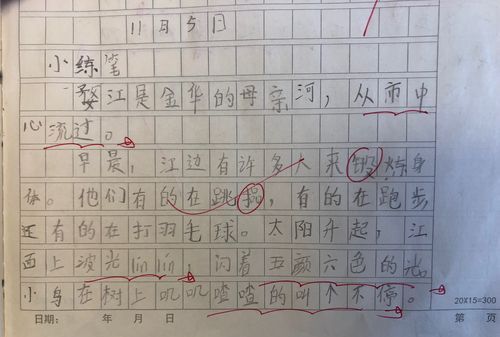 11月5日
小练笔
婺江是金华的母亲河,从市中
心流过。
早晨,江边有许多人来锻炼身
体。他们有的在跳操,有的在跑步
还有的在打羽毛球。太阳升起,江
面上波光，闪着五颜六色的光。
小鸟在树上叽叽喳喳的叫个不停。
20X15=300
日期: 年 月 日 第 页